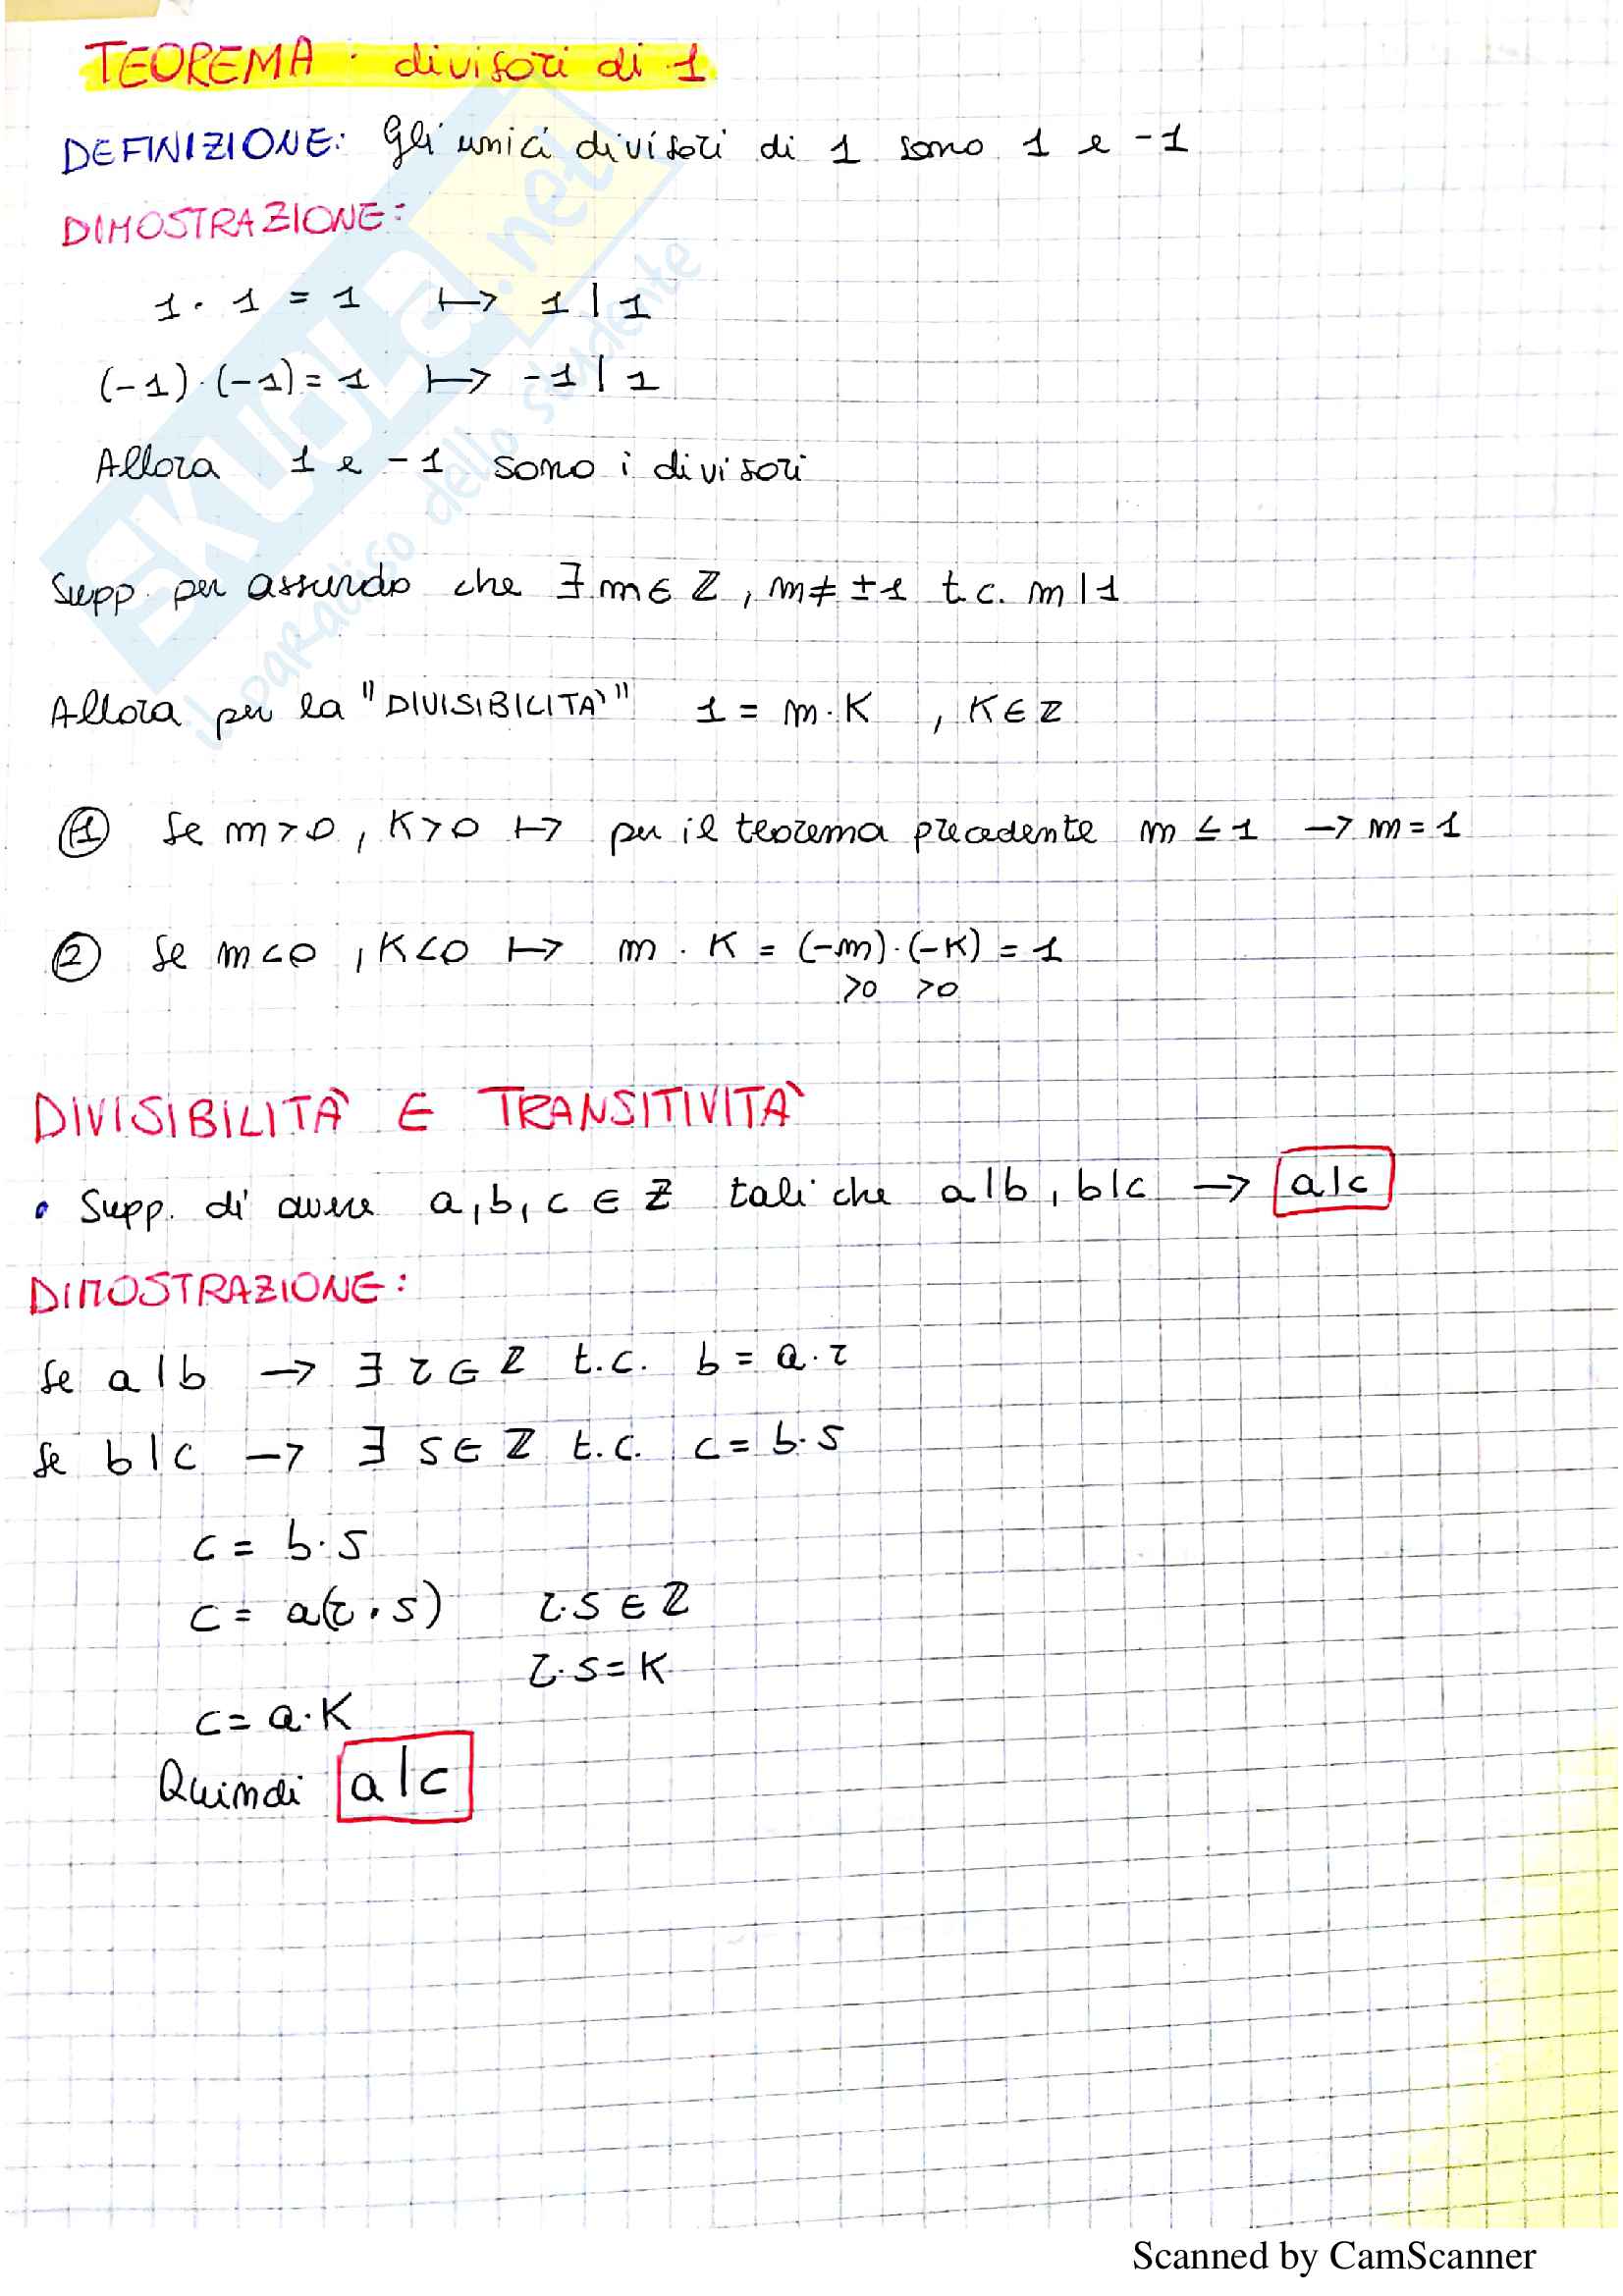 TEOREMA : divisori di 1
DEFINIZIONE: Gli unici divisori di 1 sono 1 e -1
DIMOSTRAZIONE:
1 · 1 = 1 ↦ 1 | 1
(-1) · (-1) = 1 ↦ -1 | 1
Allora 1 e -1 sono i divisori
Supp. per assurdo che ∃ m ∈ ℤ, m ≠ ±1 t.c. m | 1
Allora per la "DIVISIBILITÀ" 1 = m · K , K ∈ ℤ
① Se m > 0, K > 0 ↦ per il teorema precedente m ≤ 1 → m = 1
② Se m < 0, K < 0 ↦ m · K = (-m) · (-K) = 1
>0 >0
DIVISIBILITÀ E TRANSITIVITÀ
• Supp. di avere a, b, c ∈ ℤ tali che a | b, b | c → a | c
DIMOSTRAZIONE:
Se a | b → ∃ r ∈ ℤ t.c. b = a · r
Se b | c → ∃ s ∈ ℤ t.c. c = b · s
c = b · s
c = a(r · s) r · s ∈ ℤ
r · s = K
c = a · K
Quindi a | c
SKUOLA.net
il paradiso dello studente
Scanned by CamScanner